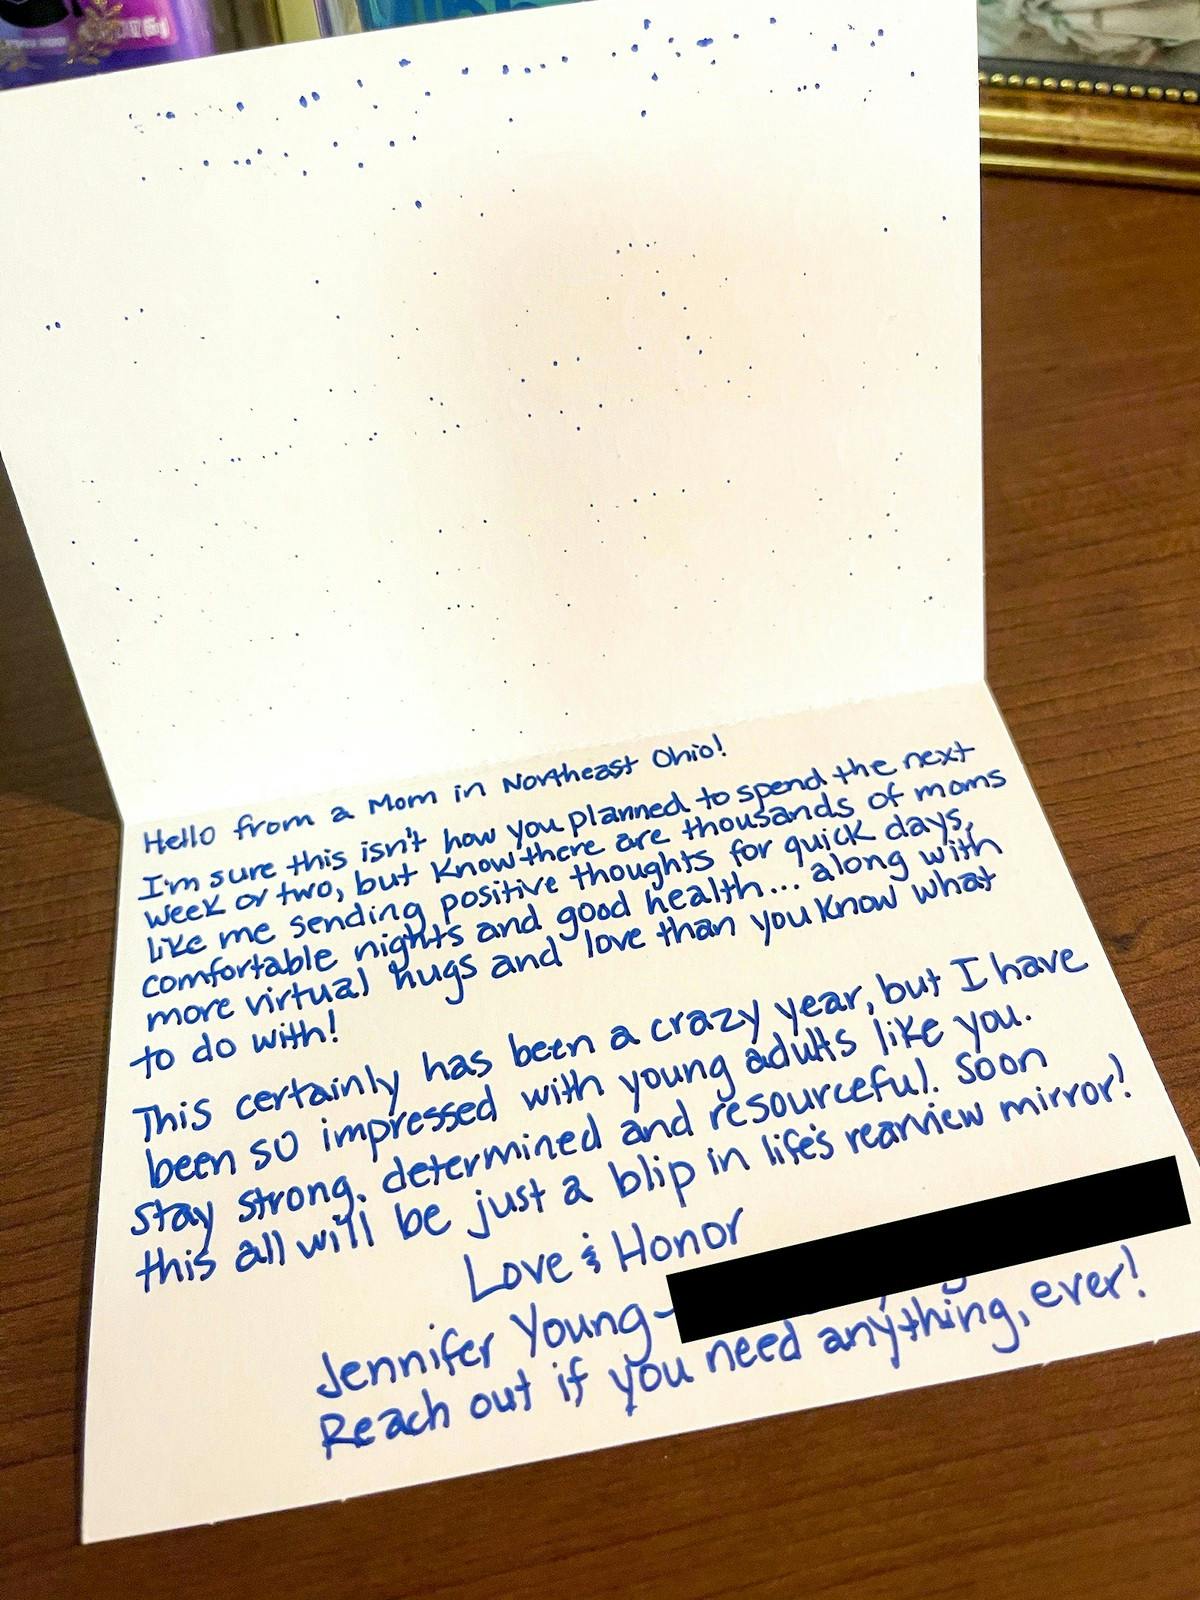 Hello from a Mom in Northeast Ohio!
I'm sure this isn't how you planned to spend the next
week or two, but know there are thousands of moms
like me sending positive thoughts for quick days,
comfortable nights and good health... along with
more virtual hugs and love than you know what
to do with!
This certainly has been a crazy year, but I have
been so impressed with young adults like you.
Stay strong, determined and resourceful. Soon
this all will be just a blip in life's rearview mirror!
Love & Honor
Jennifer Young-
Reach out if you need anything, ever!